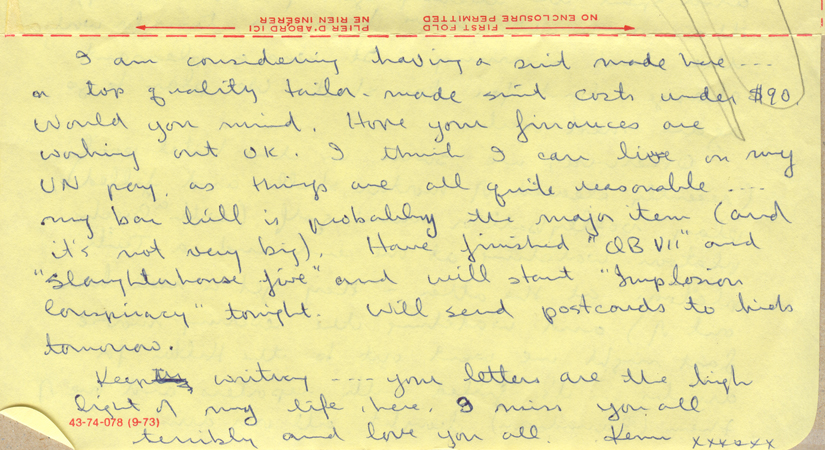 NO ENCLOSURE PERMITTED
NE RIEN INSÉRER
FIRST FOLD
PLIER D'ABORD ICI
I am considering having a suit made here ....
a top quality tailor-made suit costs under $90.
Would you mind. Hope your finances are
working out OK. I think I can live on my
UN pay, as things are all quite reasonable ....
my bar bill is probably the major item (and
it's not very big). Have finished "QB VII" and
"Slaughterhouse five" and will start "Implosion
Conspiracy" tonight. Will send postcards to kids
tomorrow.
Keep writing ---- your letters are the high
light of my life here. I miss you all
43-74-078 (9-73)
terribly and love you all. xxxoxxx